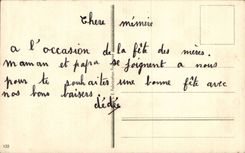 Chere mémère
a l'occasion de la fêt des mères.
maman et papa se joignent a nous
pour te souhaiter une bonne fête avec
nos bons baisers
dédée
122